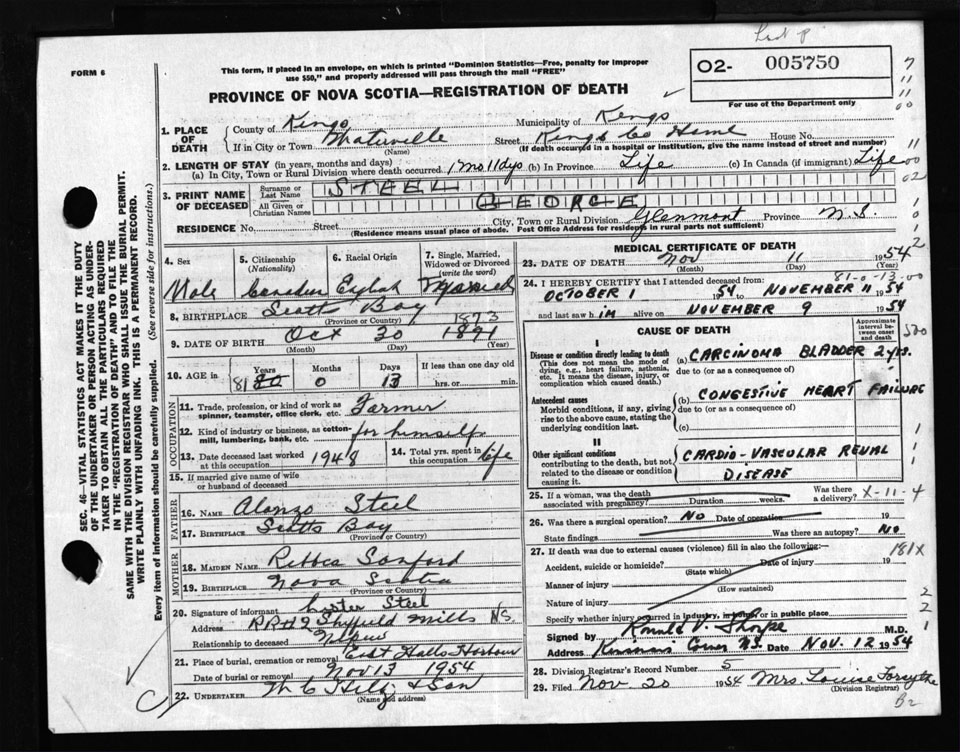 FORM 6
This form, if placed in an envelope, on which is printed "Dominion Statistics—Free, penalty for improper
use $50," and properly addressed will pass through the mail "FREE"
PROVINCE OF NOVA SCOTIA—REGISTRATION OF DEATH
O2- 005750
For use of the Department only
1. PLACE OF DEATH
County of Kings Municipality of Kings
If in City or Town Waterville Street Kings Co Home House No.
(Name) (If death occurred in a hospital or institution, give the name instead of street and number)
2. LENGTH OF STAY (in years, months and days)
(a) In City, Town or Rural Division where death occurred 1 Mo 11 dys (b) in Province Life (c) In Canada (if immigrant) Life
3. PRINT NAME OF DECEASED
Surname or Last Name STEEL
All Given or Christian Names GEORGE
RESIDENCE No. Street City, Town or Rural Division Glenmont Province N.S.
(Residence means usual place of abode. Post Office Address for residents in rural parts not sufficient)
4. Sex
Male
5. Citizenship (Nationality)
Canadian
6. Racial Origin
English
7. Single, Married, Widowed or Divorced (write the word)
Married
8. BIRTHPLACE Scotts Bay
(Province or Country)
1873
9. DATE OF BIRTH Oct 30 1871
(Month) (Day) (Year)
10. AGE in Years Months Days If less than one day old
81 80 0 13 hrs. or min.
OCCUPATION
11. Trade, profession, or kind of work as spinner, teamster, office clerk, etc. Farmer
12. Kind of industry or business, as cotton-mill, lumbering, bank, etc. for himself
13. Date deceased last worked at this occupation 1948
14. Total yrs. spent in this occupation life
15. If married give name of wife or husband of deceased
FATHER
16. NAME Alonzo Steel
17. BIRTHPLACE Scotts Bay
(Province or Country)
MOTHER
18. MAIDEN NAME Sanford
19. BIRTHPLACE Nova Scotia
(Province or Country)
20. Signature of informant Steel
Address RR#2 Sheffield Mills N.S.
Relationship to deceased Nephew
21. Place of burial, cremation or removal East Halls Harbour
Date of burial or removal Nov 13 1954
22. UNDERTAKER & Son
(Name and address)
MEDICAL CERTIFICATE OF DEATH
23. DATE OF DEATH Nov 11 1954
(Month) (Day) (Year)
81-0-13-00
24. I HEREBY CERTIFY that I attended deceased from:
OCTOBER 1 1954 to NOVEMBER 11 1954
and last saw him alive on NOVEMBER 9 1954
CAUSE OF DEATH
Approximate interval between onset and death
I
Disease or condition directly leading to death
(This does not mean the mode of dying, e.g., heart failure, asthenia, etc. It means the disease, injury, or complication which caused death.)
(a) CARCINOMA BLADDER 2 yrs.
due to (or as a consequence of)
Antecedent causes
Morbid conditions, if any, giving rise to the above cause, stating the underlying condition last.
(b) CONGESTIVE HEART FAILURE
due to (or as a consequence of)
(c)
II
Other significant conditions
contributing to the death, but not related to the disease or condition causing it.
CARDIO-VASCULAR RENAL
DISEASE
25. If a woman, was the death associated with pregnancy? Duration weeks. Was there a delivery? X-11-4
26. Was there a surgical operation? NO Date of operation 19
State findings Was there an autopsy? No
27. If death was due to external causes (violence) fill in also the following:—
181X
Accident, suicide or homicide? Date of injury 19
(State which)
Manner of injury
(How sustained)
Nature of injury
Specify whether injury occurred in industry, in home, or in public place
Signed by Ronald V. Thorpe M.D.
Address Corner N.S. Date NOV. 12 1954
28. Division Registrar's Record Number 5
29. Filed Nov. 20 1954 Mrs. Louise Forsythe
(Division Registrar)
SEC. 46—VITAL STATISTICS ACT MAKES IT THE DUTY
OF THE UNDERTAKER OR PERSON ACTING AS UNDER-
TAKER TO OBTAIN ALL THE PARTICULARS REQUIRED
IN THE "REGISTRATION OF DEATH" AND TO FILE THE
SAME WITH THE DIVISION REGISTRAR WHO SHALL ISSUE THE BURIAL PERMIT.
WRITE PLAINLY WITH UNFADING INK. THIS IS A PERMANENT RECORD.
Every item of information should be carefully supplied. (See reverse side for instructions.)